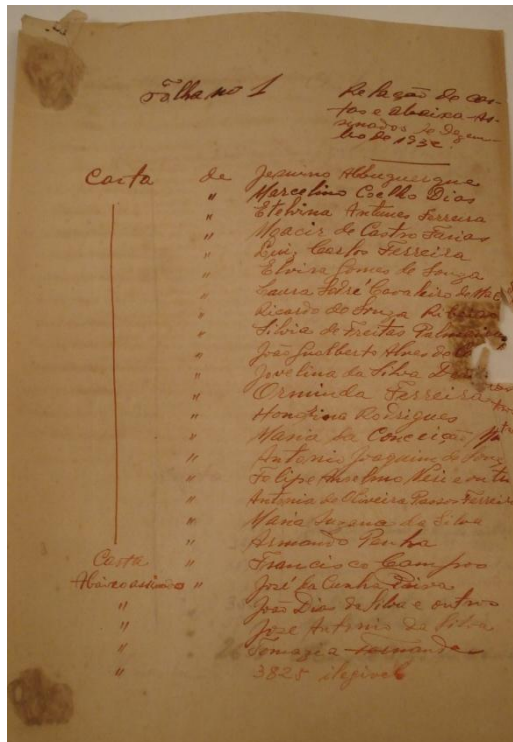 Folha no 1
Relação de car-
tas e abaixo As-
sinados de Dezem-
bro de 1932
Carta de Jesuino Albuquerque
" Marcelino Coelho Dias
" Etelvina Antunes Ferreira
" Moacir de Castro Farias
" Luiz Carlos Ferreira
" Elvira Gomes de Souza
" Laura Sodré Cavaleiro do
" Ricardo de Souza Ribeiro
" Silvia de Freitas
" João Gualberto Alves do
" Jovelina da Silva
" Orminda Ferreira
" Honorina Rodrigues
" Maria da Conceição
" Antonio Joaquim de
" Felipe Anselmo e
" Antonia de Oliveira Passos Ferreira
" Maria da Silva
" Armando Penha
Carta " Francisco Campos
Abaixo assinado " José da Cunha Paiva
" " João Dias da Silva e outros
" " José Antonio da Silva
" " Tomazia Fernandes
" " 3825 ilegivel